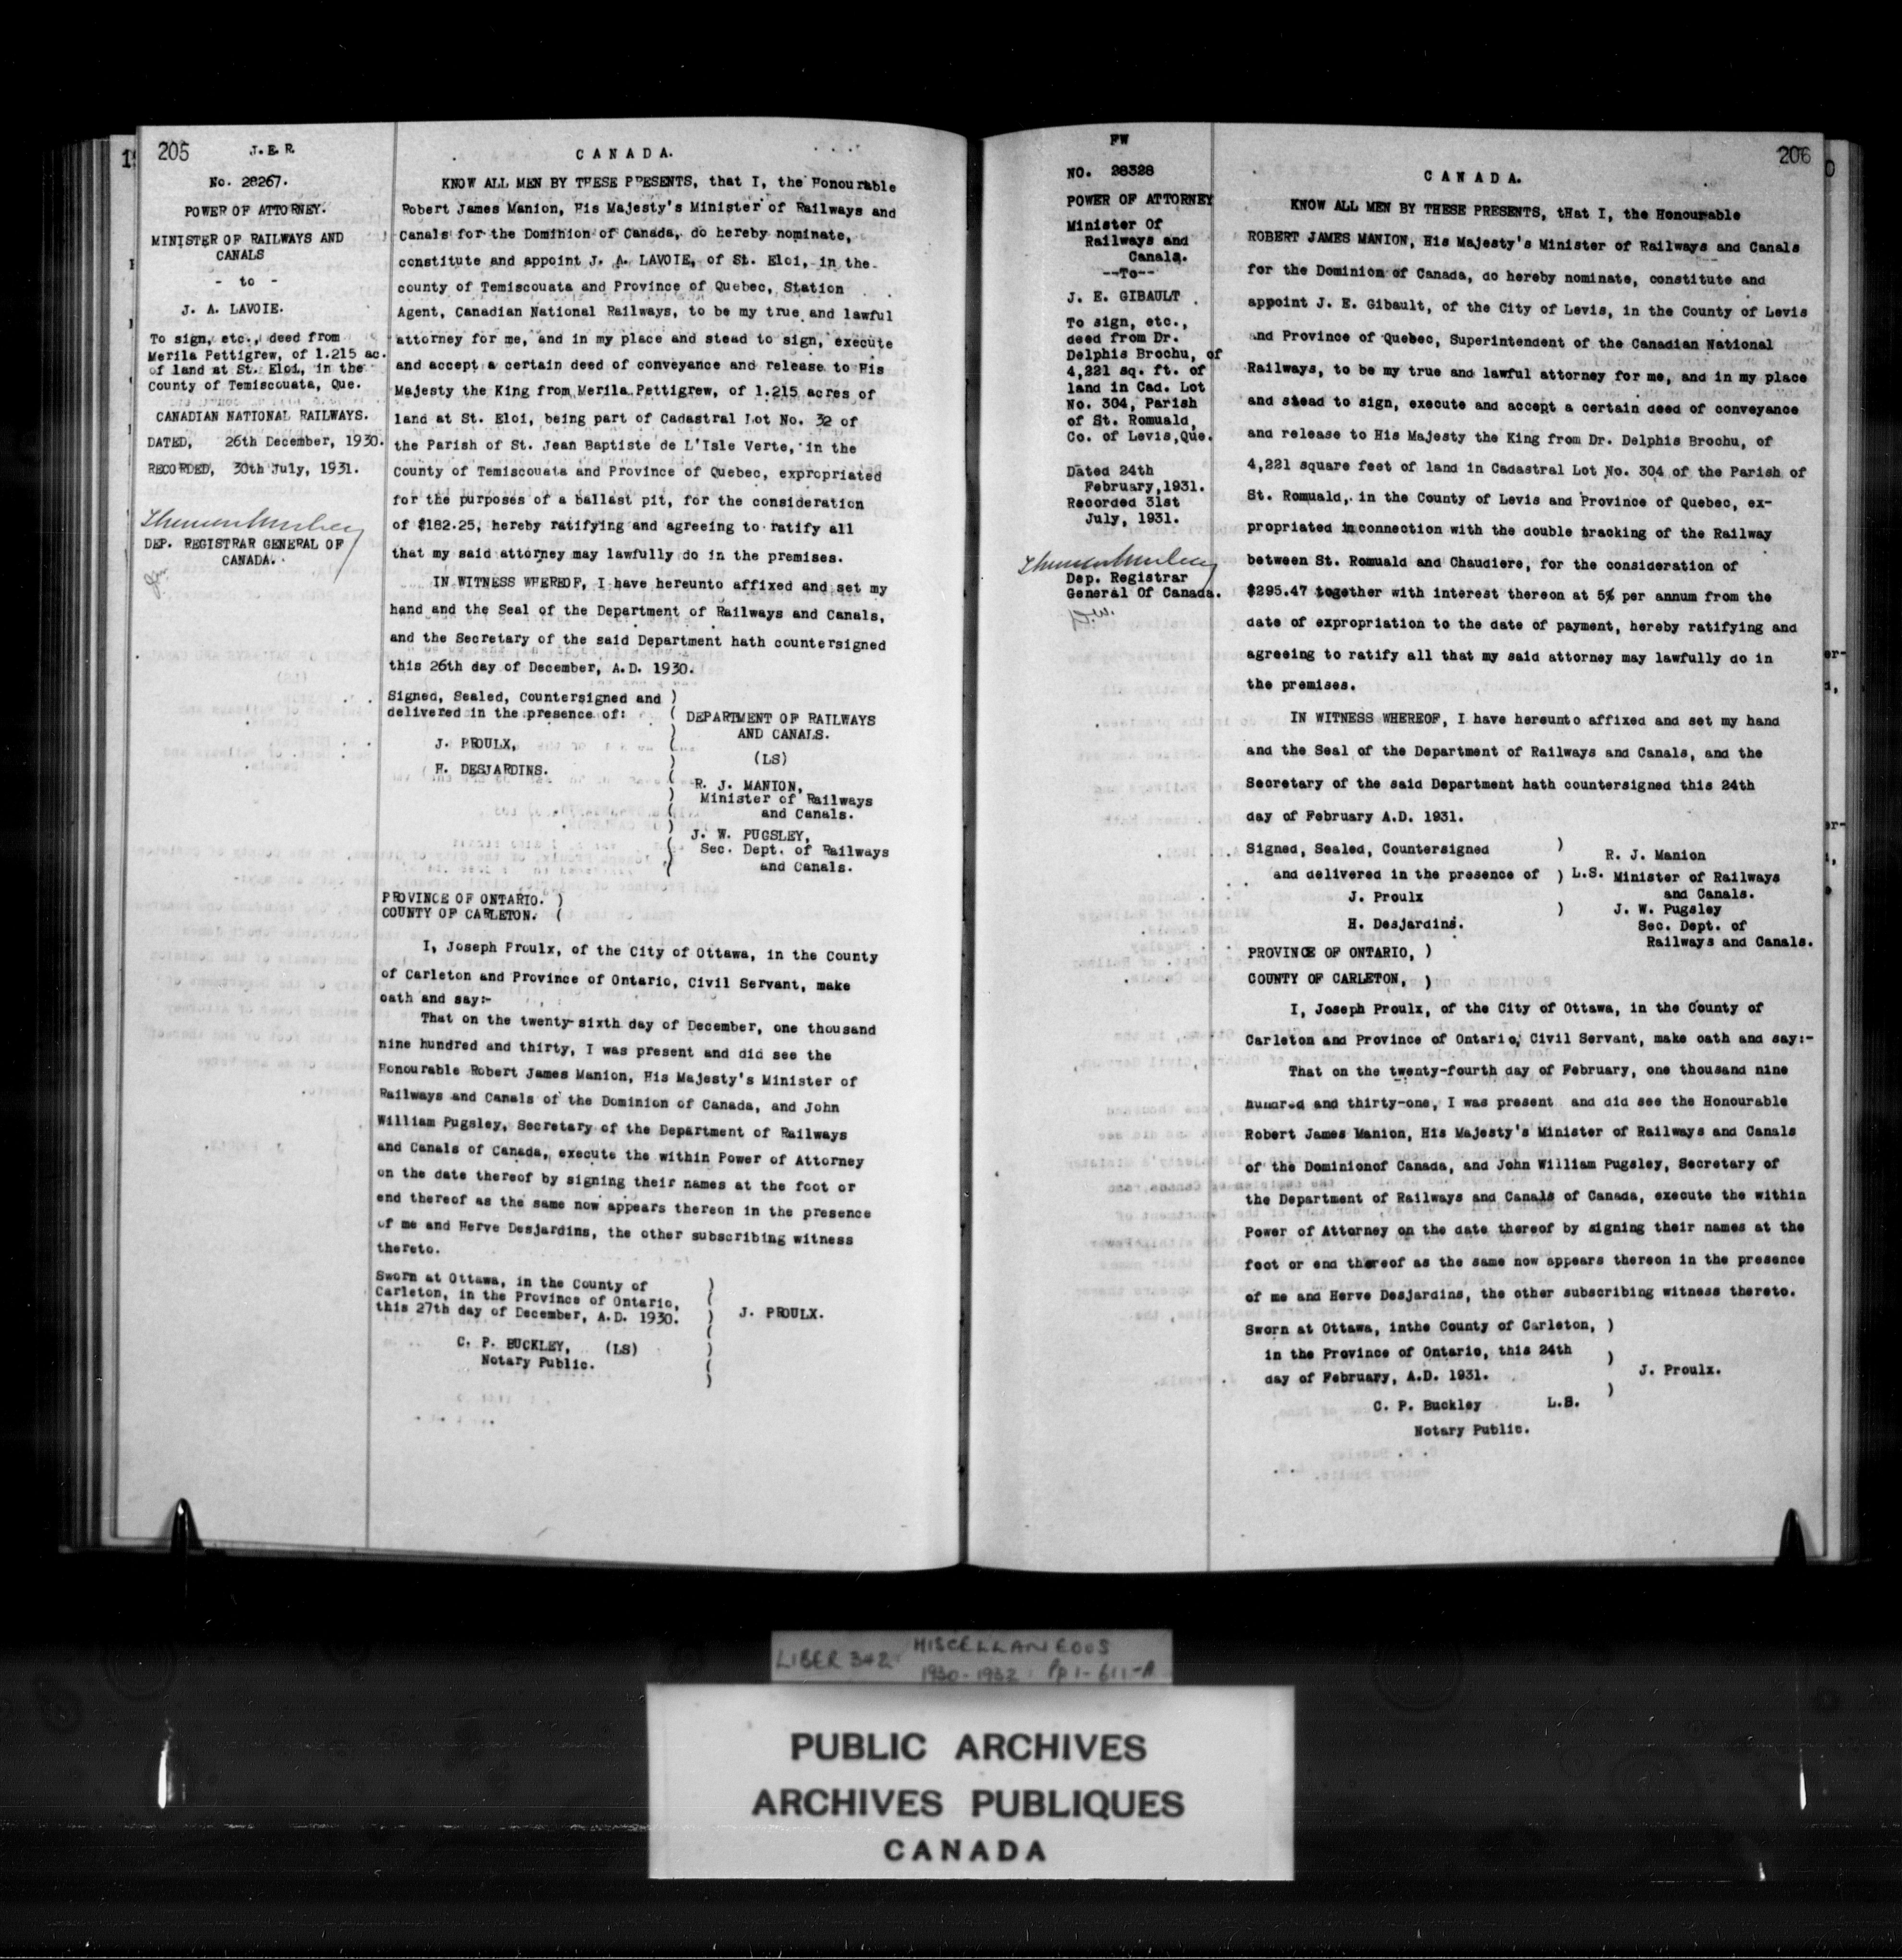 205
J. E. R.
No. 28267.
POWER OF ATTORNEY.
MINISTER OF RAILWAYS AND
CANALS
- to -
J. A. LAVOIE.
To sign, etc., deed from
Merila Pettigrew, of 1.215 ac.
of land at St. Eloi, in the
County of Temiscouata, Que.
CANADIAN NATIONAL RAILWAYS.
DATED, 26th December, 1930.
RECORDED, 30th July, 1931.
DEP. REGISTRAR GENERAL OF
CANADA.
C A N A D A.
KNOW ALL MEN BY THESE PRESENTS, that I, the Honourable
Robert James Manion, His Majesty's Minister of Railways and
Canals for the Dominion of Canada, do hereby nominate,
constitute and appoint J. A. LAVOIE, of St. Eloi, in the
county of Temiscouata and Province of Quebec, Station
Agent, Canadian National Railways, to be my true and lawful
attorney for me, and in my place and stead to sign, execute
and accept a certain deed of conveyance and release to His
Majesty the King from Merila Pettigrew, of 1.215 acres of
land at St. Eloi, being part of Cadastral Lot No. 32 of
the Parish of St. Jean Baptiste de L'Isle Verte, in the
County of Temiscouata and Province of Quebec, expropriated
for the purposes of a ballast pit, for the consideration
of $182.25, hereby ratifying and agreeing to ratify all
that my said attorney may lawfully do in the premises.
IN WITNESS WHEREOF, I have hereunto affixed and set my
hand and the Seal of the Department of Railways and Canals,
and the Secretary of the said Department hath countersigned
this 26th day of December, A.D. 1930.
Signed, Sealed, Countersigned and )
delivered in the presence of: (
DEPARTMENT OF RAILWAYS
AND CANALS.
J. PROULX,
(LS)
H. DESJARDINS.
R. J. MANION,
Minister of Railways
and Canals.
J. W. PUGSLEY,
Sec. Dept. of Railways
and Canals.
PROVINCE OF ONTARIO. )
COUNTY OF CARLETON. (
I, Joseph Proulx, of the City of Ottawa, in the County
of Carleton and Province of Ontario, Civil Servant, make
oath and say:-
That on the twenty-sixth day of December, one thousand
nine hundred and thirty, I was present and did see the
Honourable Robert James Manion, His Majesty's Minister of
Railways and Canals of the Dominion of Canada, and John
William Pugsley, Secretary of the Department of Railways
and Canals of Canada, execute the within Power of Attorney
on the date thereof by signing their names at the foot or
end thereof as the same now appears thereon in the presence
of me and Herve Desjardins, the other subscribing witness
thereto.
Sworn at Ottawa, in the County of )
Carleton, in the Province of Ontario, (
this 27th day of December, A.D. 1930. ) J. PROULX.
C. P. BUCKLEY, (LS)
Notary Public.
206
FW
NO. 28328
POWER OF ATTORNEY
Minister Of
Railways and
Canals.
--To--
J. E. GIBAULT
To sign, etc.,
deed from Dr.
Delphis Brochu, of
4,221 sq. ft. of
land in Cad. Lot
No. 304, Parish
of St. Romuald,
Co. of Levis,Que.
Dated 24th
February,1931.
Recorded 31st
July, 1931.
Dep. Registrar
General Of Canada.
C A N A D A.
KNOW ALL MEN BY THESE PRESENTS, tHat I, the Honourable
ROBERT JAMES MANION, His Majesty's Minister of Railways and Canals
for the Dominion of Canada, do hereby nominate, constitute and
appoint J. E. Gibault, of the City of Levis, in the County of Levis
and Province of Quebec, Superintendent of the Canadian National
Railways, to be my true and lawful attorney for me, and in my place
and stead to sign, execute and accept a certain deed of conveyance
and release to His Majesty the King from Dr. Delphis Brochu, of
4,221 square feet of land in Cadastral Lot No. 304 of the Parish of
St. Romuald, in the County of Levis and Province of Quebec, ex-
propriated in connection with the double tracking of the Railway
between St. Romuald and Chaudiere, for the consideration of
$295.47 together with interest thereon at 5% per annum from the
date of expropriation to the date of payment, hereby ratifying and
agreeing to ratify all that my said attorney may lawfully do in
the premises.
IN WITNESS WHEREOF, I have hereunto affixed and set my hand
and the Seal of the Department of Railways and Canals, and the
Secretary of the said Department hath countersigned this 24th
day of February A.D. 1931.
Signed, Sealed, Countersigned )
R. J. Manion
and delivered in the presence of ) L.S. Minister of Railways
and Canals.
J. Proulx
) J. W. Pugsley
H. Desjardins.
Sec. Dept. of
Railways and Canals.
PROVINCE OF ONTARIO, )
COUNTY OF CARLETON, )
I, Joseph Proulx, of the City of Ottawa, in the County of
Carleton and Province of Ontario, Civil Servant, make oath and say:-
That on the twenty-fourth day of February, one thousand nine
hundred and thirty-one, I was present and did see the Honourable
Robert James Manion, His Majesty's Minister of Railways and Canals
of the Dominionof Canada, and John William Pugsley, Secretary of
the Department of Railways and Canals of Canada, execute the within
Power of Attorney on the date thereof by signing their names at the
foot or end thereof as the same now appears thereon in the presence
of me and Herve Desjardins, the other subscribing witness thereto.
Sworn at Ottawa, inthe County of Carleton, )
in the Province of Ontario, this 24th )
day of February, A.D. 1931. J. Proulx.
)
C. P. Buckley L.S.
Notary Public.
LIBER 342 MISCELLANEOUS
1930-1932 Pp 1-611-A
PUBLIC ARCHIVES
ARCHIVES PUBLIQUES
CANADA